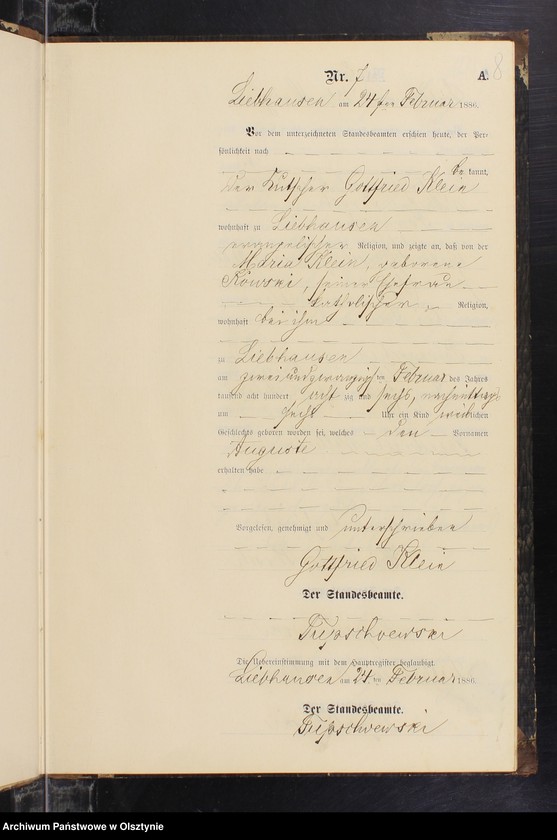 Nr. 7 A. 8
Liebhausen am 24ten Februar 1886.
Vor dem unterzeichneten Standesbeamten erschien heute, der Per-
sönlichkeit nach
be kannt,
der Kutscher Gottfried Klein
wohnhaft zu Liebhausen
evangelischer Religion, und zeigte an, daß von der
Maria Klein, geborene
seiner Ehefrau
katholischer Religion,
wohnhaft bei ihm
zu Liebhausen
am zweiundzwanzigsten Februar des Jahres
tausend acht hundert acht zig und sechs, nachmittags
um sechs Uhr ein Kind weiblichen
Geschlechts geboren worden sei, welches den Vornamen
Auguste
erhalten habe
Vorgelesen, genehmigt und unterschrieben
Gottfried Klein
Der Standesbeamte.
Die Uebereinstimmung mit dem Hauptregister beglaubigt
Liebhausen am 24ten Februar 1886.
Der Standesbeamte.
Archiwum Państwowe w Olsztynie